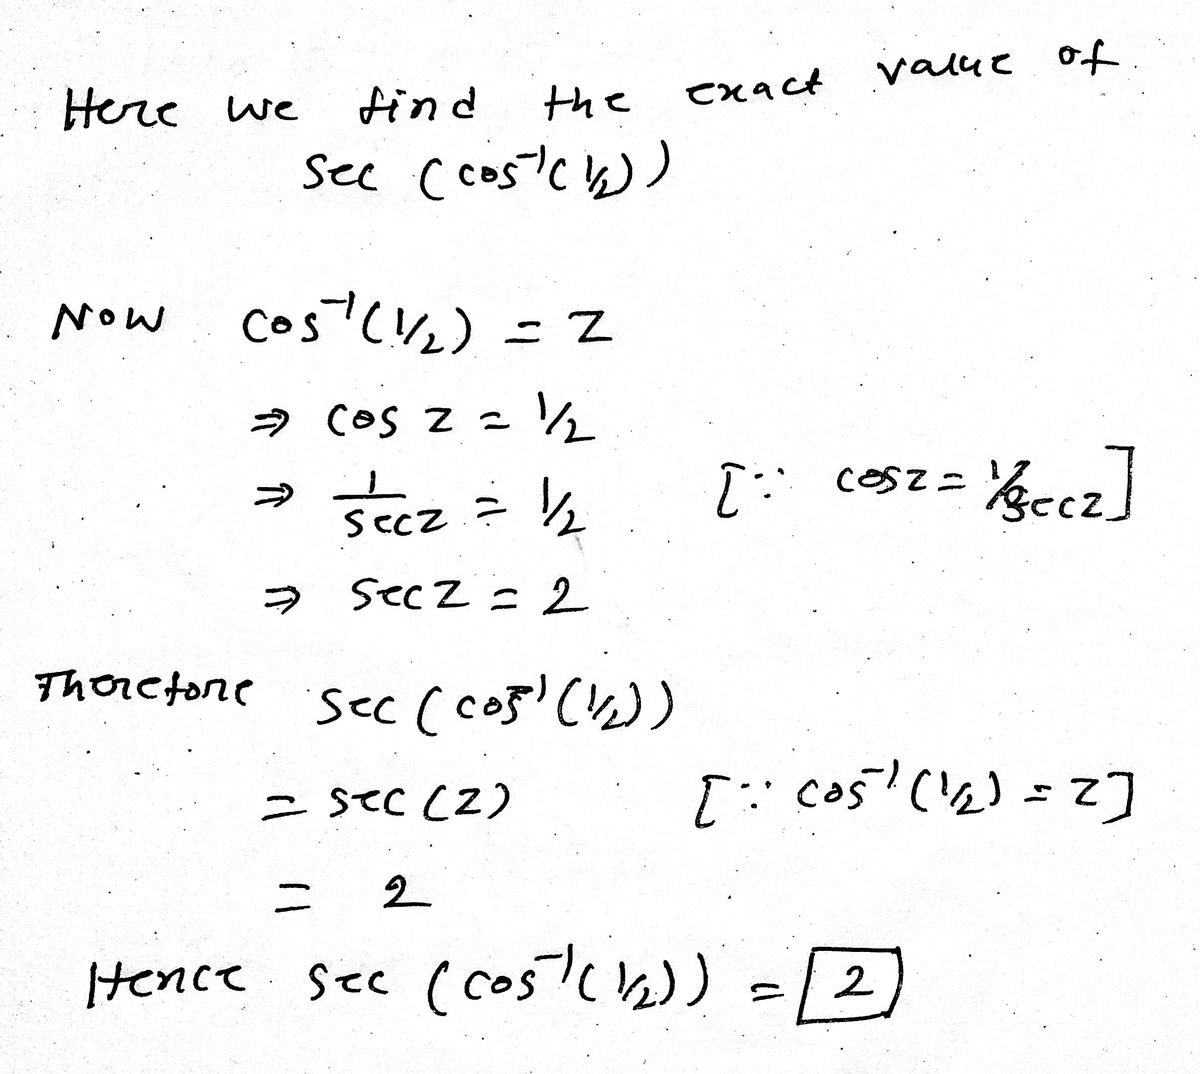 Here we find the exact value of
sec (cos⁻¹(1/2))
Now cos⁻¹(1/2) = z
⇒ cos z = 1/2
⇒ 1/secz = 1/2 [∵ cosz = 1/secz]
⇒ secz = 2
Therefore sec (cos⁻¹(1/2))
= sec (z) [∵ cos⁻¹(1/2) = z]
= 2
Hence sec (cos⁻¹(1/2)) = 2